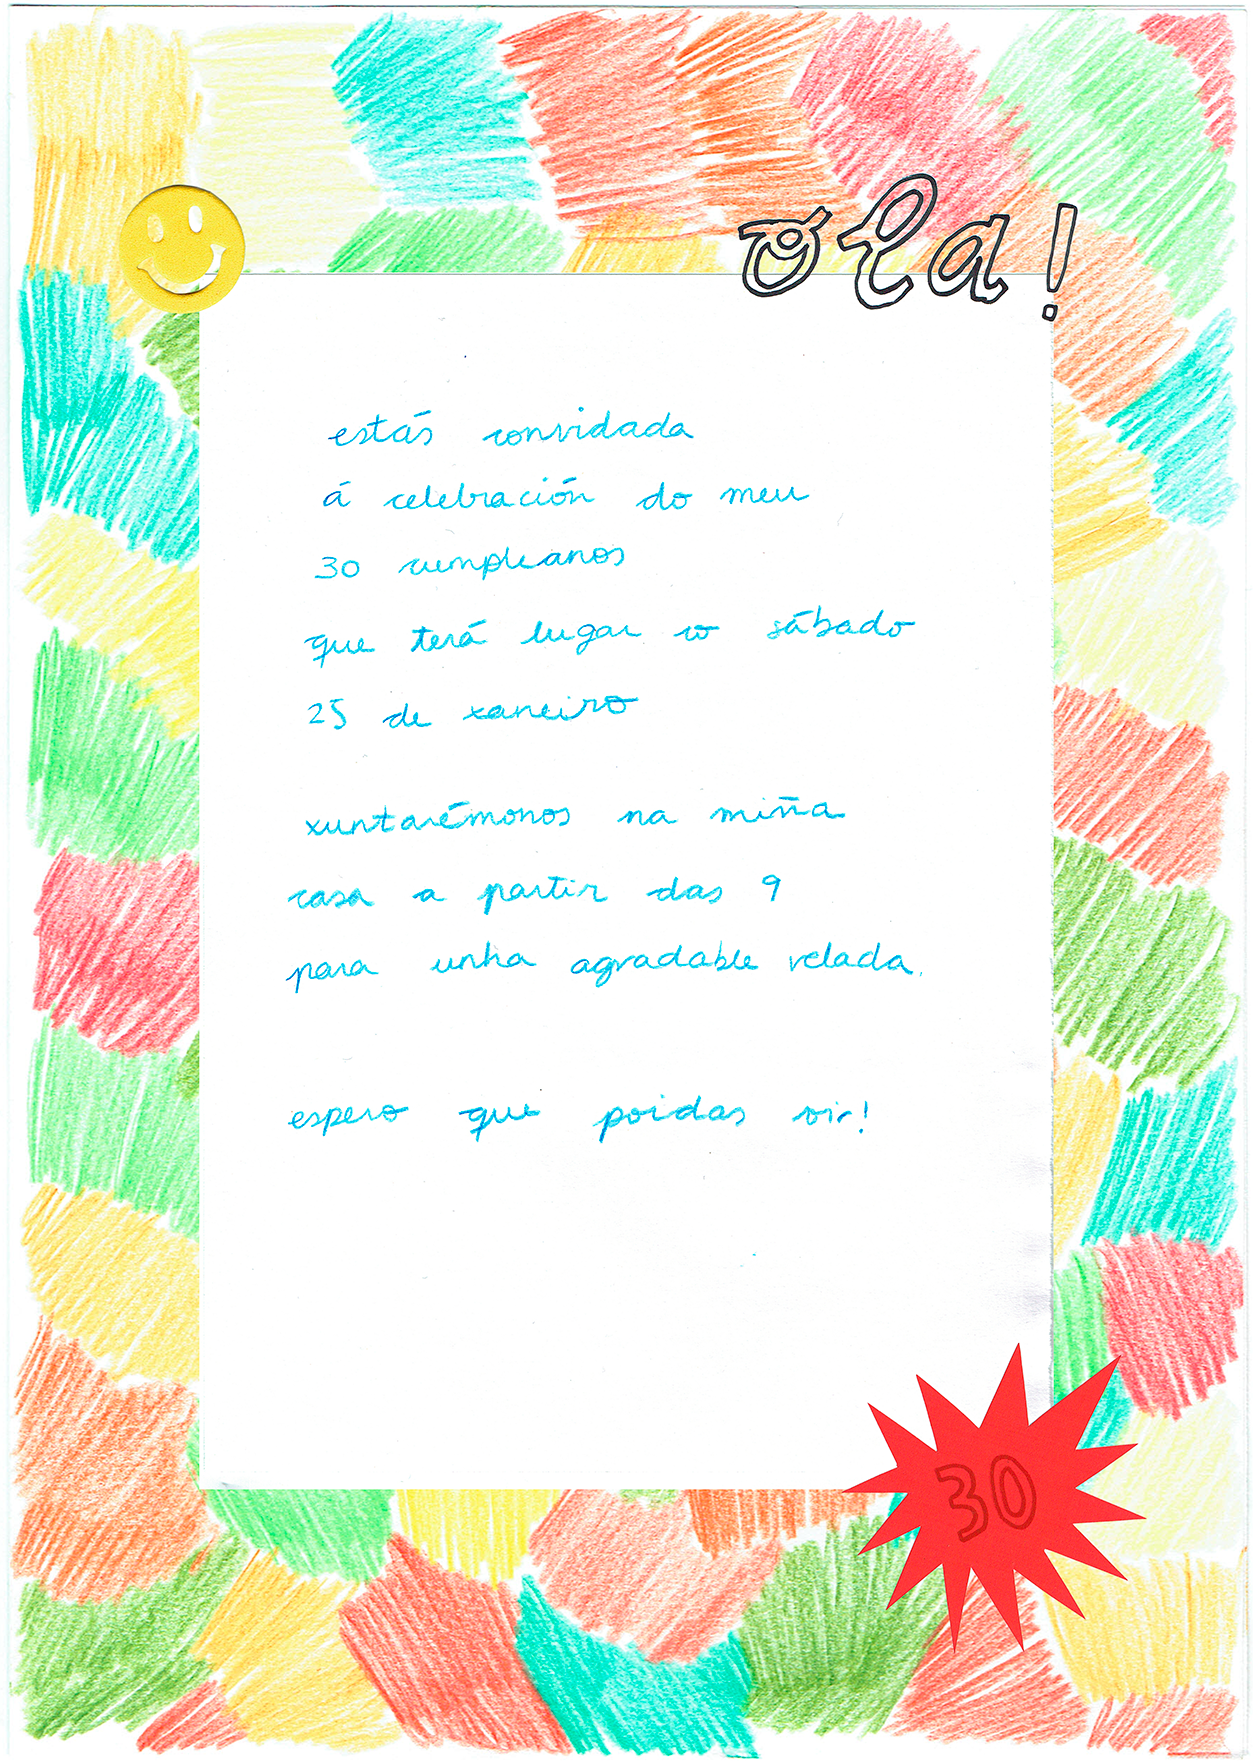 ola!
estás convidada
á celebración do meu
30 cumpleanos
que terá lugar o sábado
25 de xaneiro
xuntarémonos na miña
casa a partir das 9
para unha agradable velada.
espero que poidas vir!
30